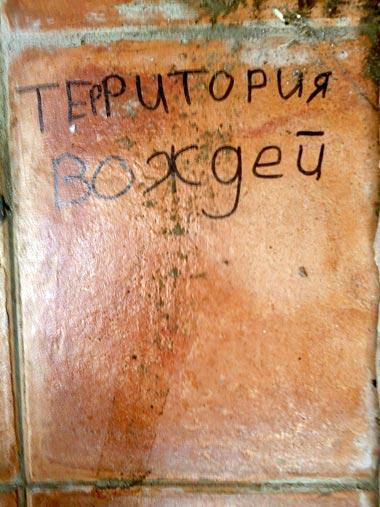 ТЕРРИТОРИЯ
ВОждей